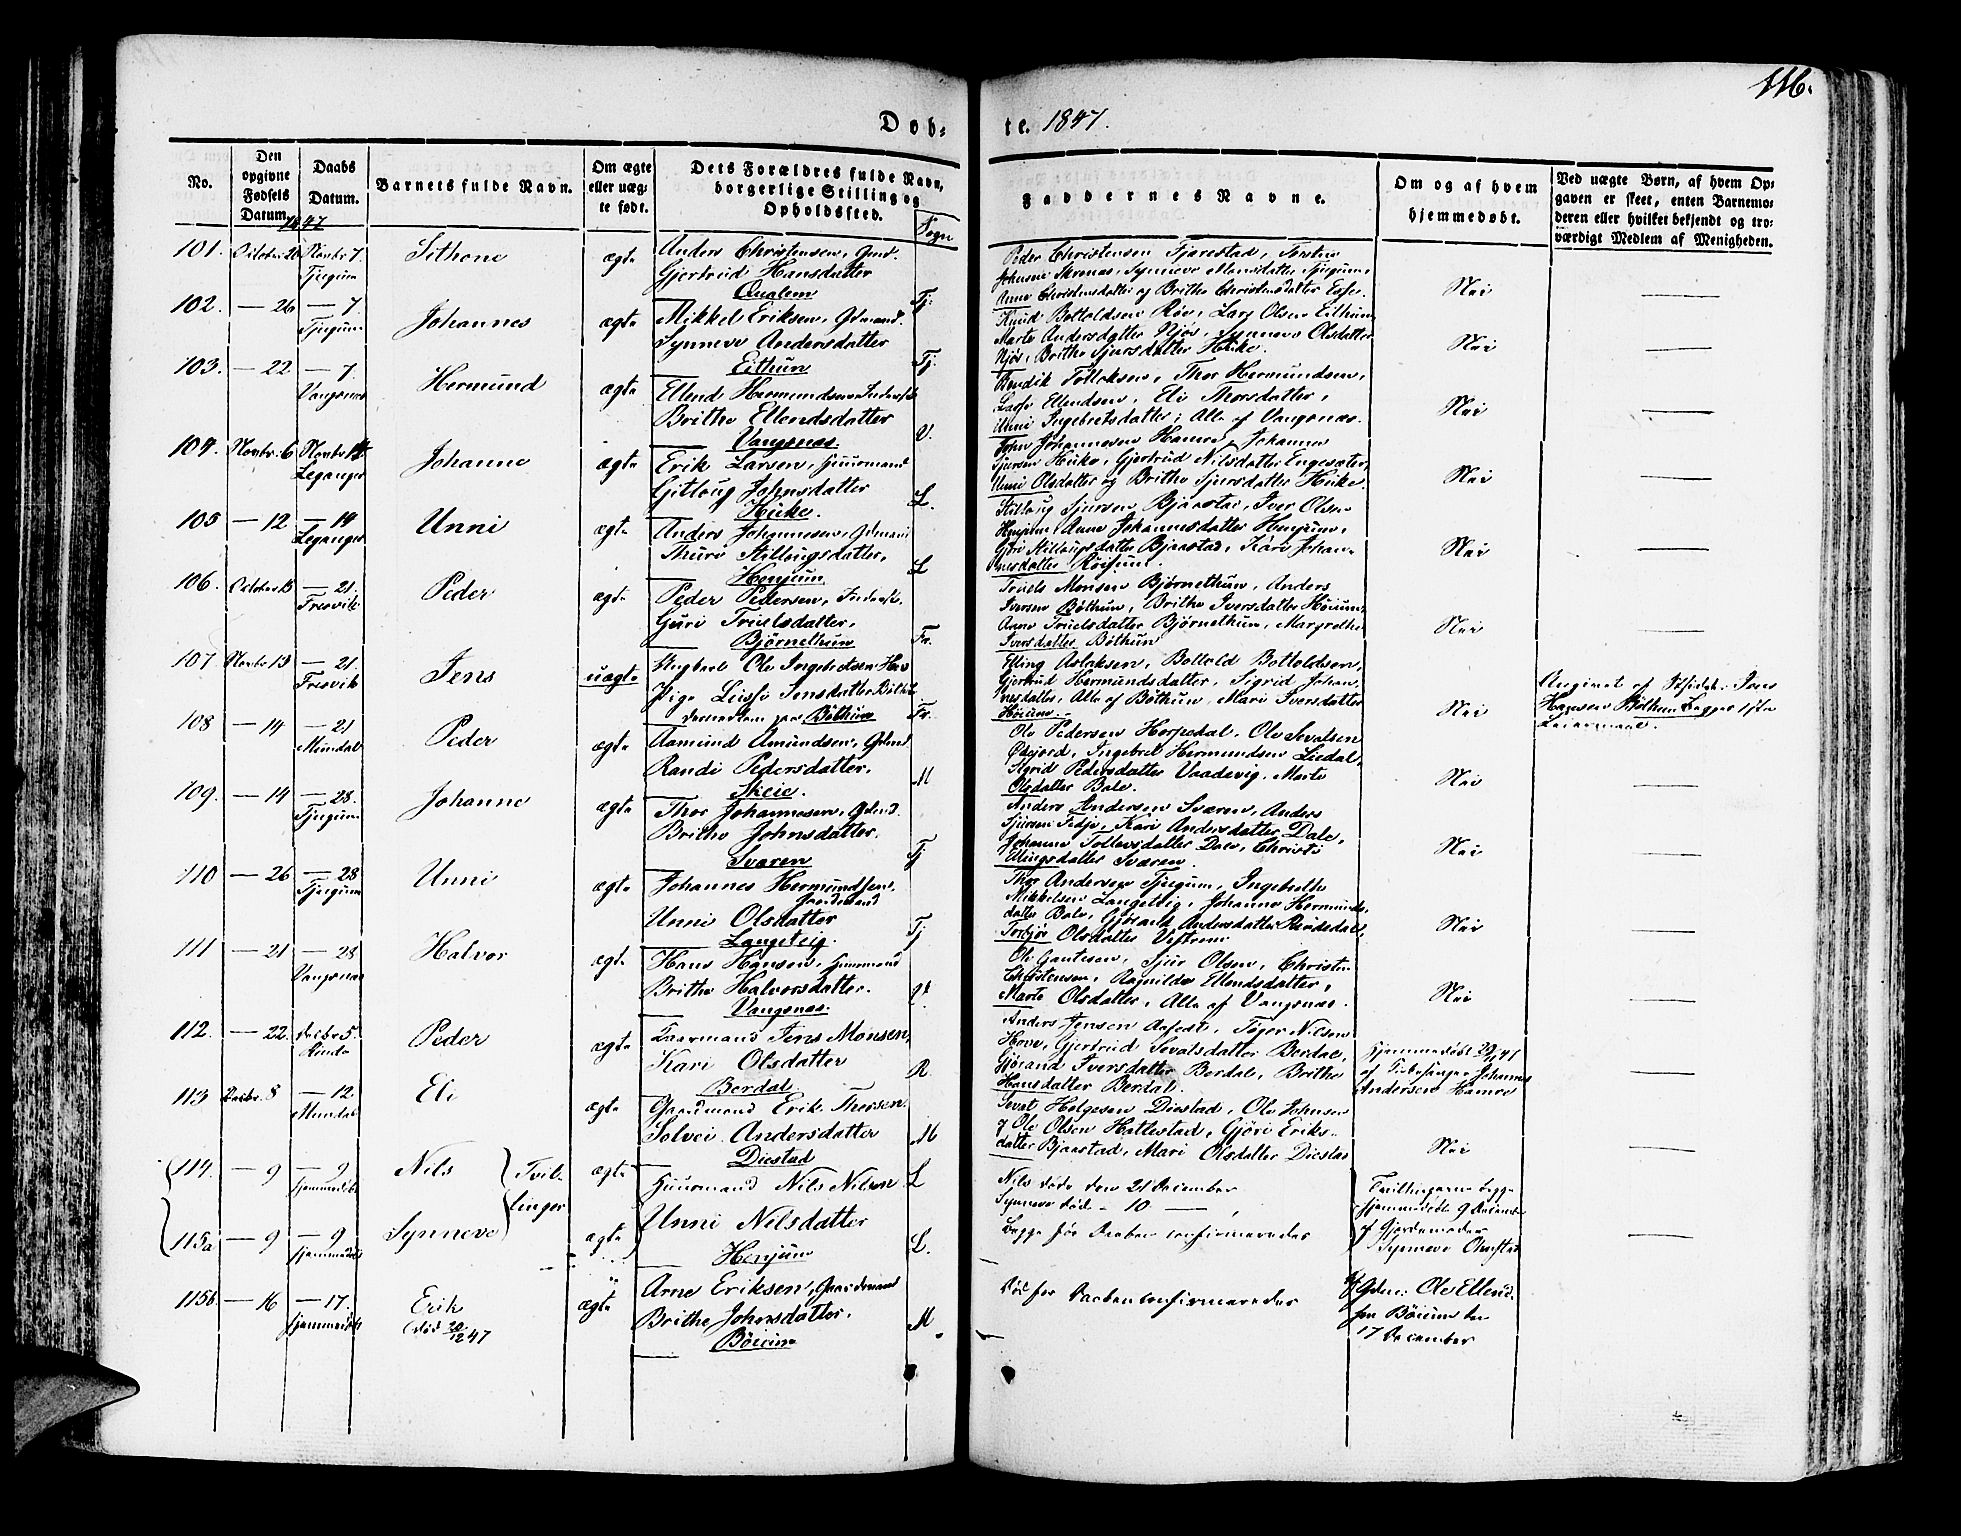 116.
Døb-
te. 1847.
No.
Den opgivne Fødsels Datum.
Daabs Datum.
1847
Barnets fulde Navn.
Om ægte eller uægte født.
Dets Forældres fulde Navn, borgerlige Stilling og Opholdssted.
Sogn
Faddernes Navne.
Om og af hvem hjemmedøbt.
Ved uægte Børn, af hvem Opgaven er skeet, enten Barnemoderen eller hvilket bekjendt og troværdigt Medlem af Menigheden.
101. Octobr. 20 Novbr 7. Tjugum
ægte
Anders Christensen, Grmd.
Gjertrud Hansdatter
Qualem
Tj:
Peder Christensen Fjærestad,
Anne Christensdatter og Brithe Christensdatter Esse.
Nei
102. — 26 — 7. Tjugum
Johannes
ægte
Mikkel Eriksen, Grmand.
Synneve Andersdatter
Eithun
Tj.
Knud Bottoldsen Røv, Lars Olsen Eithun
Marte Andersdatter Njøs, Synneve Olsdatter
Njøs, Brithe Sjursdatter Huke.
Nei
103. — 22 — 7. Vangsnæs
Hermund
ægte
Ellend Hermundsen
Brithe Ellendsdatter
Vangsnæs.
V.
Bendik Tollaksen, Thor Hermundsen,
Lasse Ellendsen, Eli Thorsdatter,
Unni Ingebretsdatter, Alle af Vangsnæs.
Nei
104. Novbr. 6 Novbr 14 Leganger
Johanne
ægte
Erik Larsen, Huusmand
Gitlaug Johnsdatter
Huke.
L.
John Johannesen Hamre, Johannes
Sjursen Huke, Gjertrud Nilsdatter Engesæter,
Unni Olsdatter og Brithe Sjursdatter Huke.
Nei
105 — 12 — 14 Leganger
Unni
ægte
Anders Johannesen, Grmand
Thuri Stillaugsdatter,
Henjum
L
Stillaug Sjursen Bjaastad, Iver Olsen
Henjum, Anne Johannesdatter Henjum,
Gjøri Stillaugsdatter Bjaastad, Kari Johan-
nesdatter Røisum.
Nei
106. October 15 — 21. Fresvik
Peder
ægte
Peder Pedersen,
Guri Truelsdatter,
Bjørnethun
Fr.
Truels Monsen Bjørnethun, Anders
Iversen Bøthun, Brithe Iversdatter Høium,
Anne Truelsdatter Bjørnethun, Margrethe
Iversdatter Bøthun
Nei
107 Novbr 13 — 21. Fresvik
Jens
uægte
Ungkarl Ole Ingebretsen
Pige Lisse Jensdatter Bøthun
Bøthun
Fr.
Elling Aslaksen, Bottold Bottoldsen,
Gjertrud Hermundsdatter, Sigrid Johan-
nesdatter, Alle af Bøthun, Mari Iversdatter
Høium.
Nei
Angivet af
Hansen Bøthun Begges 1ste
Leiermaal.
108 — 14 — 21 Mundal
Peder
ægte
Aamund Amundsen, Grmd.
Randi Pedersdatter.
Skeie.
M
Ole Pedersen Horpedal, Ole Sevatsen
Øygjord, Ingebret Hermundsen Liedal,
Sigrid Pedersdatter Vaadevig, Marte
Olsdatter Bale.
Nei
109. — 14 — 28. Tjugum
Johanne
ægte
Thor Johannesen, Grmd.
Brithe Johnsdatter.
Sværen
Tj
Anders Andersen Sværen, Anders
Sjursen Fedje, Kari Andersdatter Dale,
Johanne Tollevsdatter Dale, Christi
Ellingsdatter Sværen.
Nei
110 — 26 — 28 Tjugum
Unni
ægte
Johannes Hermundsen,
Gaardmand
Unni Olsdatter
Langeteig.
Tj
Thor Andersen Tjugum, Ingebrigt
Mikkelsen Langeteig, Johanne Hermunds-
datter Bale, Gjørand Andersdatter
Torbjør Olsdatter Vestrem
Nei
111 — 21 — 28 Vangsnæs
Halvor
ægte
Hans Hansen, Huusmand
Brithe Halvorsdatter.
Vangsnæs.
V.
Ole Gautesen, Sjur Olsen, Christen
Christensen, Ragnilde Ellendsdatter,
Marte Olsdatter, Alle af Vangsnæs.
Nei
112. — 22. Decbr 5. Rinde
Peder
ægte
Gaarmand Jens Monsen,
Kari Olsdatter
Berdal.
R
Anders Jensen Aafedt, Tøger Nilsen
Hove, Gjertrud Sevatsdatter Berdal,
Gjørand Iversdatter Berdal, Brithe
Hansdatter Berdal.
Hjemmedøbt
af Kirkesanger Johannes
Andersen Hamre
113 Decbr. 8 — 12. Mundal
Eli
ægte
Gaardmand Erik Thorsen
Solvei Andersdatter
Distad
M
Sevat Helgesen Distad, Ole Johnsen
og Ole Olsen Hatlestad, Gjøri Eriks-
datter Bjaastad, Mari Olsdatter Distad
Nei
114. — 9 — 9 hjemmedøbt
Nils
Tvil-
linger
ægte
Huusmand Nils Nilsen
L
Nils døde den 21 December
Synneve død - 10 —
Tvillingerne begge
hjemmedøbt 9 December
115a — 9 — 9 hjemmedøbt
Synneve
ægte
Unni Nilsdatter
Henjum
L.
Begge før Daaben confirmeredes
af Gjordemoder
Synneve Ølnestad
115b — 16 — 17. hjemmedøbt
Erik
(død 20/12 47
ægte
Arne Eriksen, Gaardmand
Brithe Johnsdatter.
Bøium
M.
Død før Daaben confirmeredes
af Gdm: Ole Ellend-
sen Bøium den
17 December